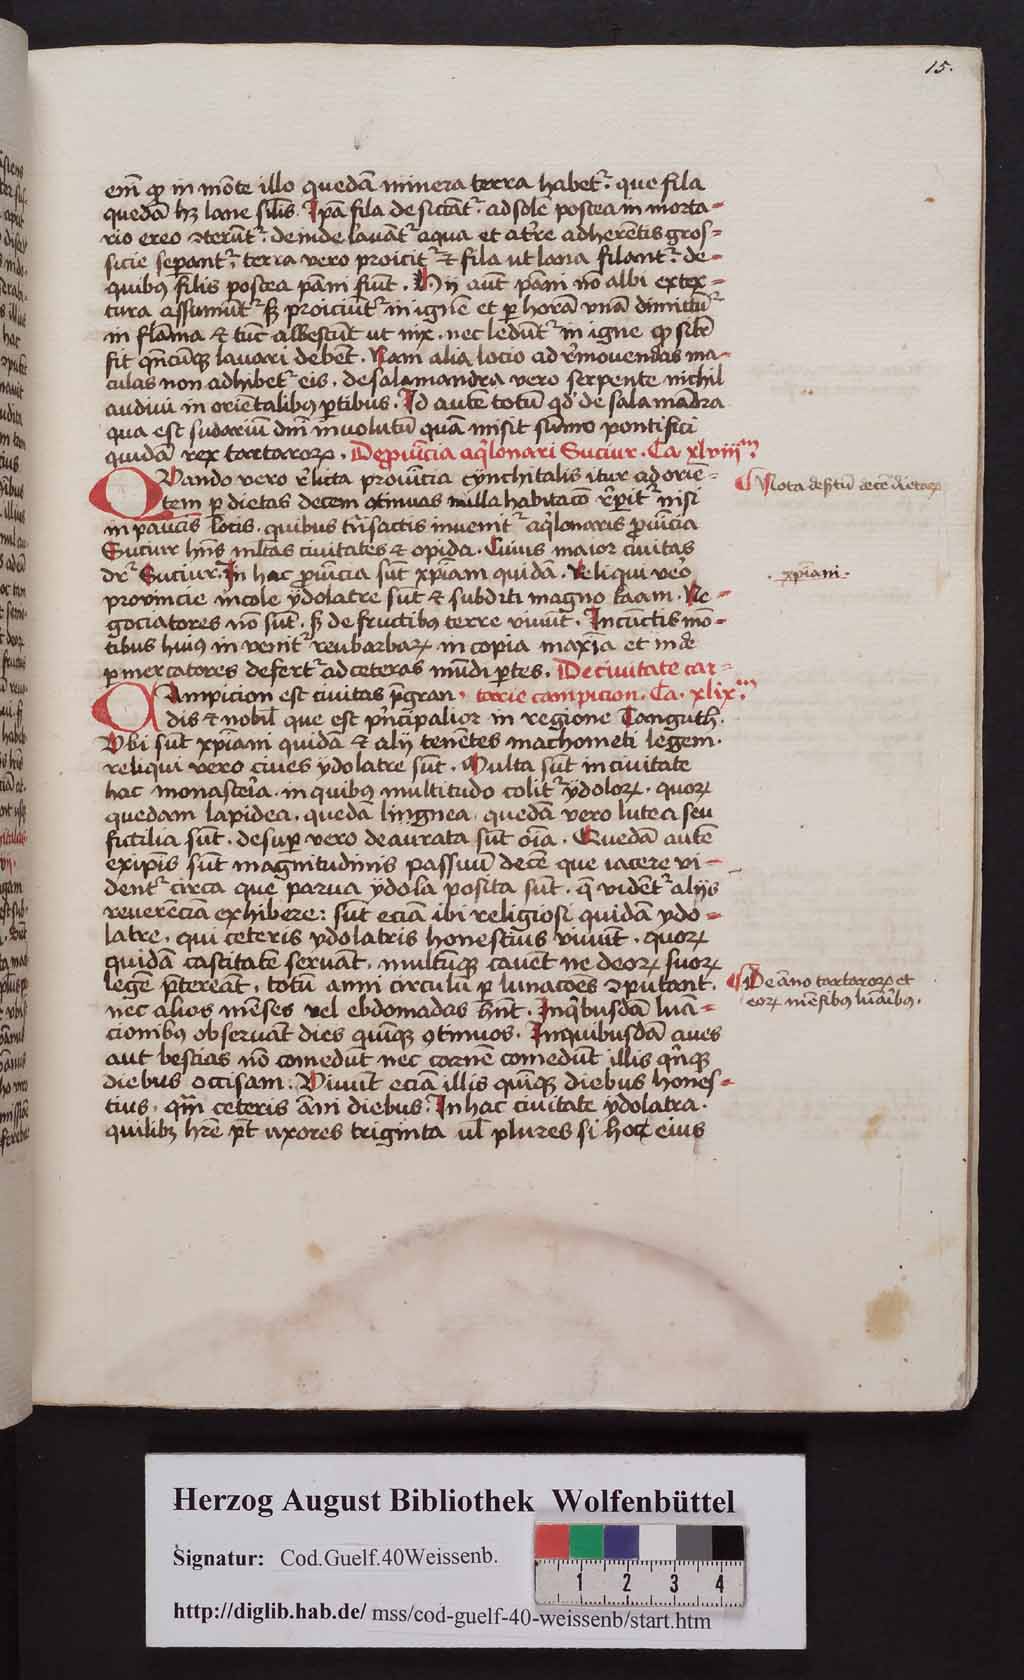 15.
em̄ ꝙ in mōte illo quedā minera terra habetr̄. que fila
quedā hꝫ lane sil̄is. Ipā fila desicātr̄. ad solē postea in morta=
rio ereo ɔterūtr̄. deinde lauātr̄ aqua et a tr̄re adherētis gros=
sicie sepantr̄. terra vero proicitr̄ ⁊ fila ut lana filantr̄. de=
quibꝰ filis postea pāni fiūt. Hij aūt pāni nō albi ex tex=
tura assumūtr̄ sꝫ proiciūtr̄ in ignē et ꝑ horā vnā dimittūtr̄
in flāma ⁊ tūc albescūt ut nix. nec ledūtr̄ in igne ꝙ sil̄r
fit qn̄cūqꝫ lauari debēt. Nam alia locio ad rͤmouendas ma=
culas non adhibetr̄ eis. de salamandra vero serpente nichil
audiui in oriētalibꝰ ꝑtibus. Id autē totū qd̄ de salamādra
qua est sudariū dn̄i inuolutū quā misit sūmo pontifici
quidā rex tartarorꝝ. De ꝓuīcia aqͥlonari Suciur. Ca xlviijm̄
QVando vero rͤlicta prouīcia cynchitalis itur ad oriē=
tem ꝑ dietas decem ꝯtinuas nulla habitacō rͤꝑitr̄ nisi
in paucis locis. quibus trͣsactis inuenitr̄ aqͥlonaris ꝓuīcia
Suciur hn̄s ml̄tas ciuitates ⁊ opida. Cuius maior ciuitas
dr̄ Suciur. In hac ꝓuīcia sūt xp̄iani quidā. Reliqui vero
provincie incole ydolatre sūt ⁊ subditi magno kaam. Ne=
gociatores nō sūt. sꝫ de fructibꝰ terre viuūt. In cūctis mō=
tibus huiꝰ in venitr̄ reubarbarꝝ in copia maxīa et inde
ꝑ mercatores defertr̄ ad ceteras mūdi ꝑtes. De ciuitate tar=
CAmpicion est ciuitas p̄gran- tarie campicion. Ca. xlixm̄
dis ⁊ nobil̄ que est pͥncipalior in regione Tanguth.
Vbi sūt xp̄iani quidā ⁊ alij tenētes machometi legem.
reliqui vero ciues ydolatre sūt. Multa sūt in ciuitate
hac monasteͥa. in quibus multitudo colitr̄ ydolorꝝ. quorꝝ
quedam lapidea. quedā lingnea. quedā vero lutea seu
futilia sūt. desuꝑ vero deaurata sūt oīa. Quedā autē
ex ip̄is sūt magnitudinis passuū decē que iacere vi=
dentr̄ circa que parua ydola posita sūt. q̄ vidētr̄ alijs
reuerēciā exhibere: sūt eciā ibi religiosi quidā ydo=
latre. qui ceteris ydolatris honestius viuūt. quorꝝ
quidā castitatē seruāt. multūqꝫ cauēt ne deorꝝ suorꝝ
legē p̄tereāt. totū anni circulū ꝑ lunacōes ɔputant.
nec alios mēses vel ebdomadas hn̄t. In qͥbusdā lūa=
cionibus obseruāt dies quīqꝫ ꝯtinuos. In quibusdā aues
aut bestias nō comedūt nec carnē comedūt illis qͥnqꝫ
diebus occisam. Viuūt eciā illis quīqꝫ diebus hones=
tius. qm̄ ceteris āni diebus. In hac ciuitate ydolatra.
quilibꝫ hr̄e pt̄ vxores triginta ul̄ plures si hoc eius
Nota desertū decē dietarꝝ
xp̄iani
De āno tartarorꝝ et
eorꝝ mēsibꝰ lūaribꝰ.
Herzog August Bibliothek Wolfenbüttel
Signatur: Cod.Guelf.40Weissenb.
1 2 3 4
http://diglib.hab.de/ mss/cod-guelf-40-weissenb/start.htm